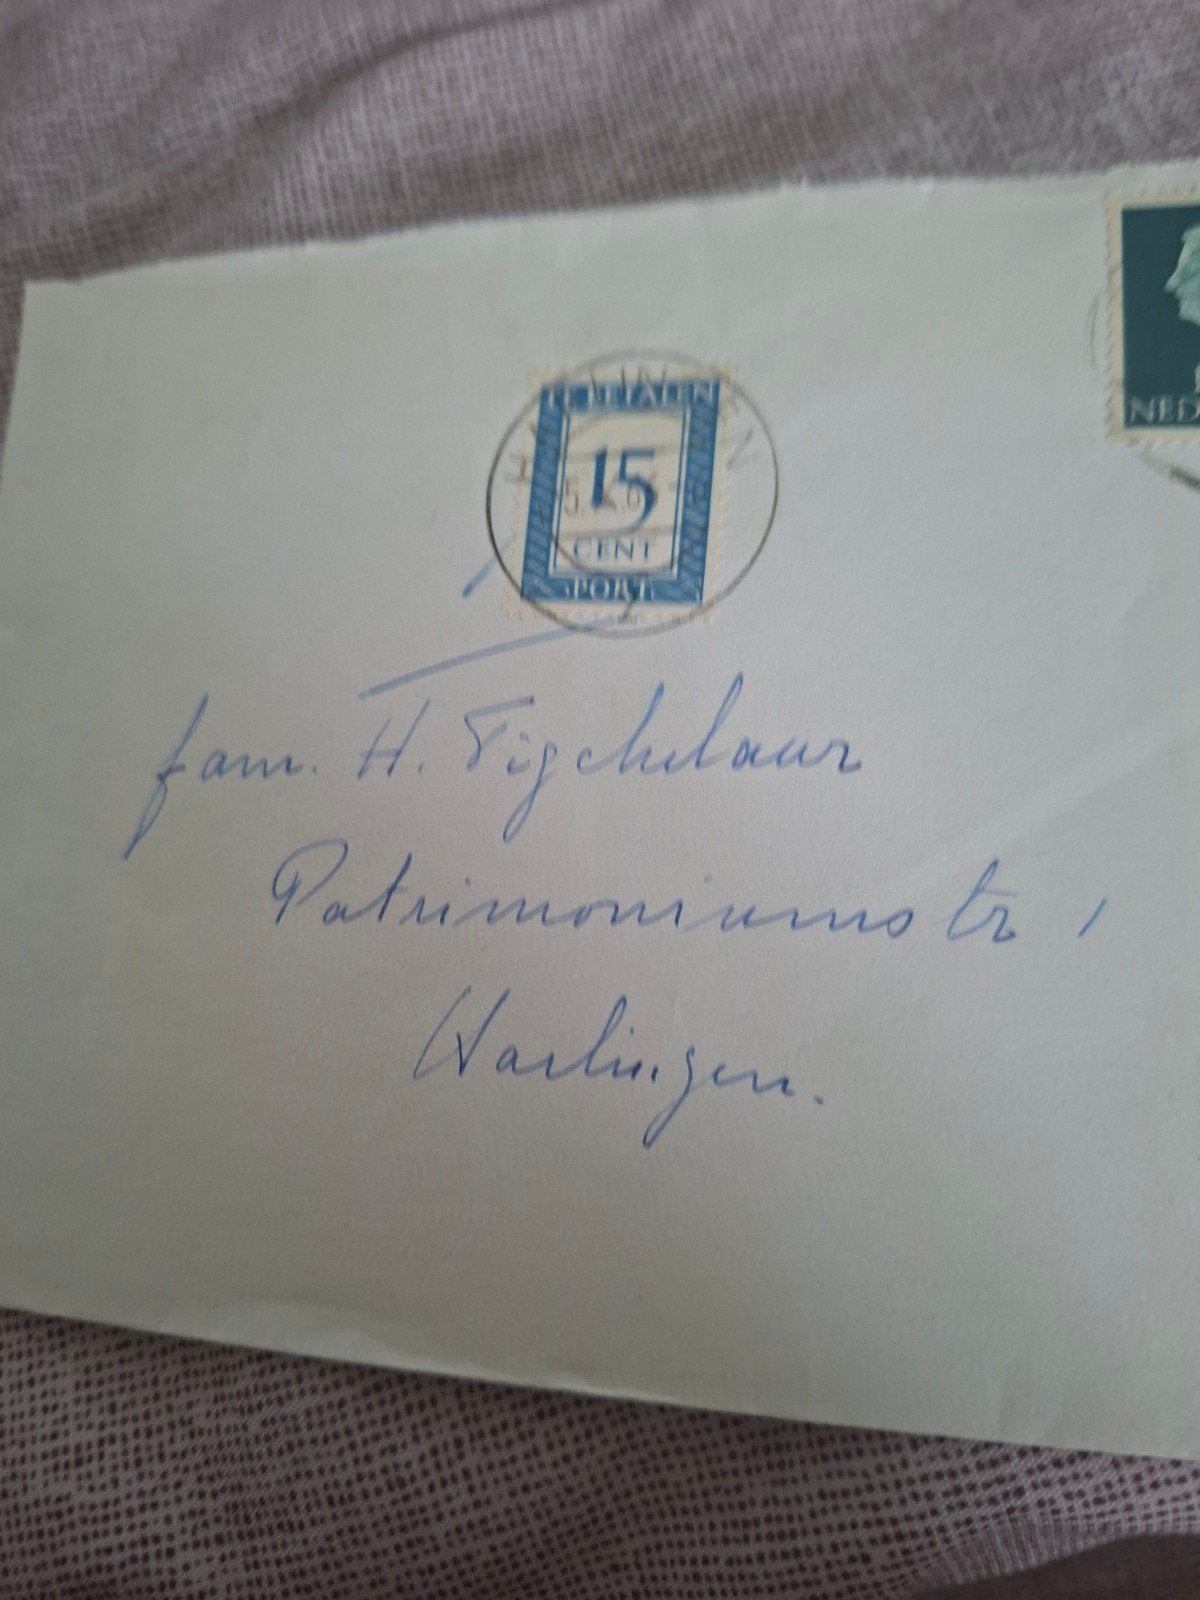 NED
HARLINGEN
TE BETALEN
15
CENT
PORT
fam. H. Tigchelaar
Patrimoniumstr 1
Harlingen.